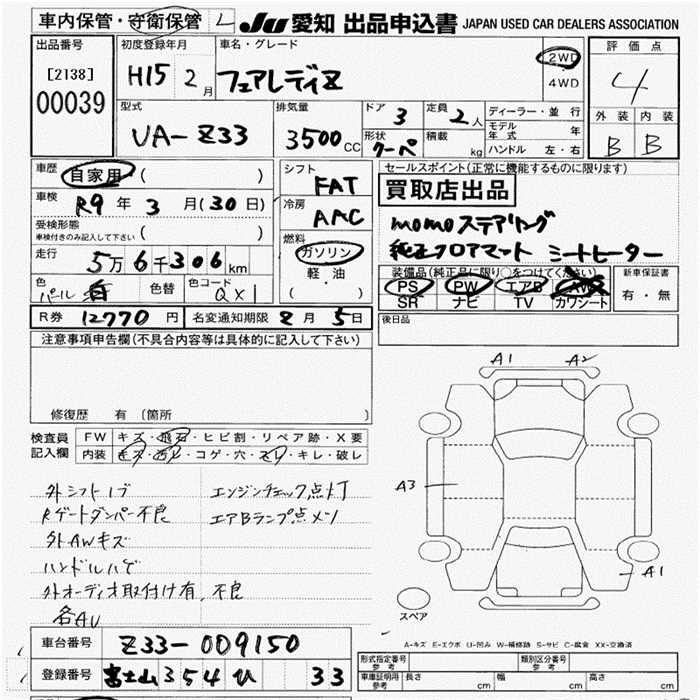 車内保管・守衛保管 L JU 愛知 出品申込書 JAPAN USED CAR DEALERS ASSOCIATION
出品番号 初度登録年月 車名・グレード 2WD 評価点
[2138] H15 2月 フェアレディZ 4WD 4
00039
型式 排気量 ドア 3 定員 2人 ディーラー・並行 外装 内装
UA-Z33 3500CC 形状 クーペ 積載 kg モデル年式 年 B B
ハンドル 左・右
車歴 自家用 ( ) シフト FAT セールスポイント(正常に機能するものに限ります)
車検 R9年3月(30日) 冷房 AAC 買取店出品
受検形態 車検付きのみ記入して下さい ( ) 燃料 momoステアリング
走行 5万6千306km ガソリン 純正フロアマット シートヒーター
色 パール白 色替 色コード QX1 軽油 ( ・ ) 装備品(純正品に限り○をつけてください) 新車保証書
PS PW エアB AW 有・無
SR ナビ TV カワシート
R券 12770円 名変通知期限 2月5日 後日品
注意事項申告欄(不具合内容等は具体的に記入して下さい)
修復歴 有 〔箇所 〕
検査員 FW キズ・飛石・ヒビ割・リペア跡・X要
記入欄 内装 キズ・汚レ・コゲ・穴・スレ・キレ・破レ
外シフトノブ エンジンチェック点灯
Rゲートダンパー不良 エアBランプ点メツ
外AWキズ
ハンドルハゲ
外オーディオ取付け有、不良
各AU
A1 A2
A3
A1
スペア
A-キズ E-エクボ U-凹み W-補修跡 S-サビ C-腐食 XX-交換済
車台番号 Z33-009150
登録番号 富士山354ひ 33
形式指定番号 参考 類別区分番号 参考
車庫証明用 参考 長さ cm 幅 cm 高さ cm